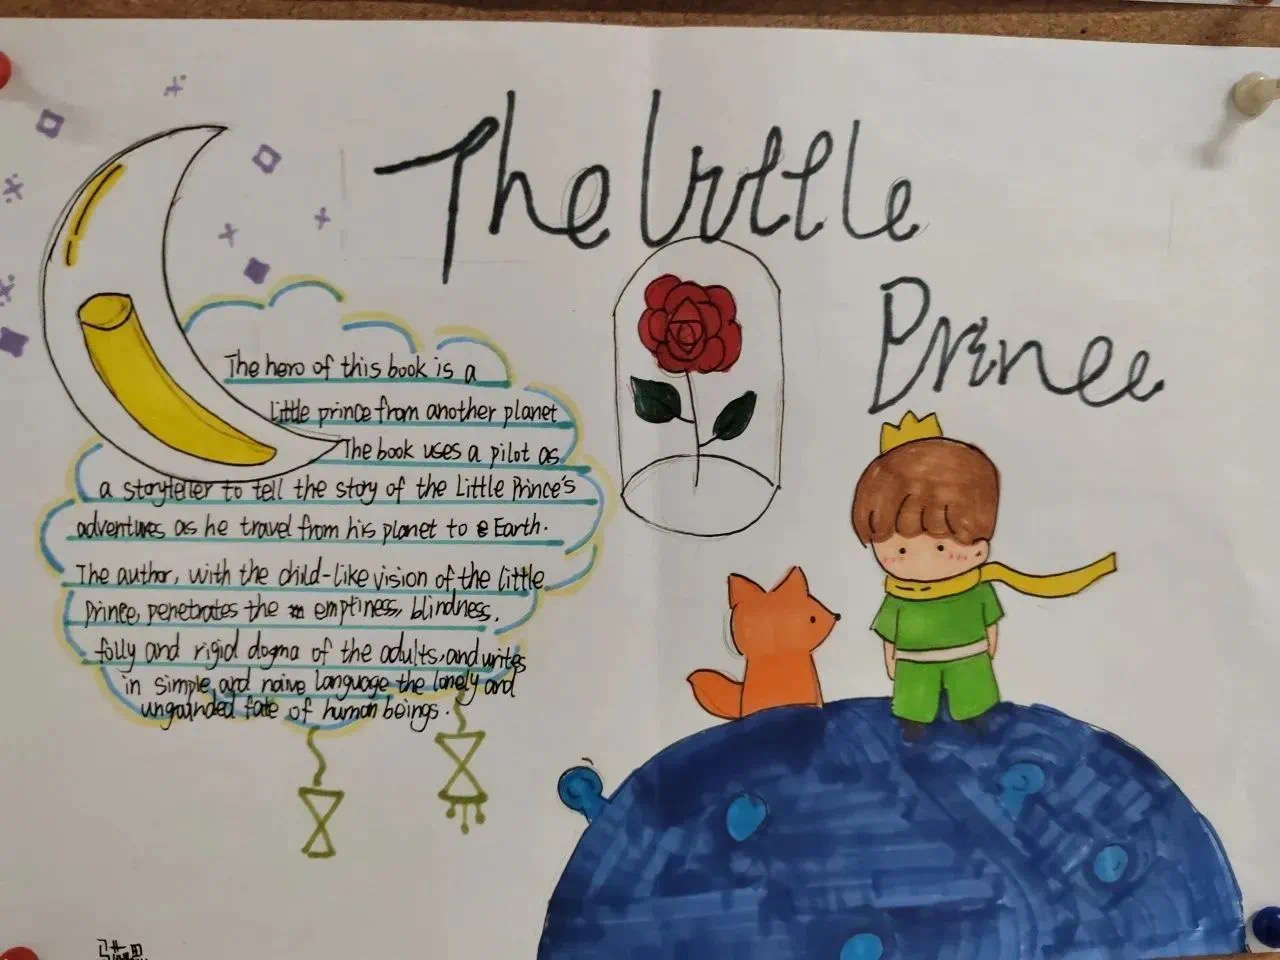 The Little
Prince
The hero of this book is a
little prince from another planet
The book uses a pilot as
a storyteller to tell the story of the Little Prince's
adventures as he travel from his planet to Earth.
The author, with the child-like vision of the little
prince, penetrates the emptiness, blindness,
folly and rigid dogma of the adults, and writes
in simple and naive language the lonely and
ungrounded fate of human beings.